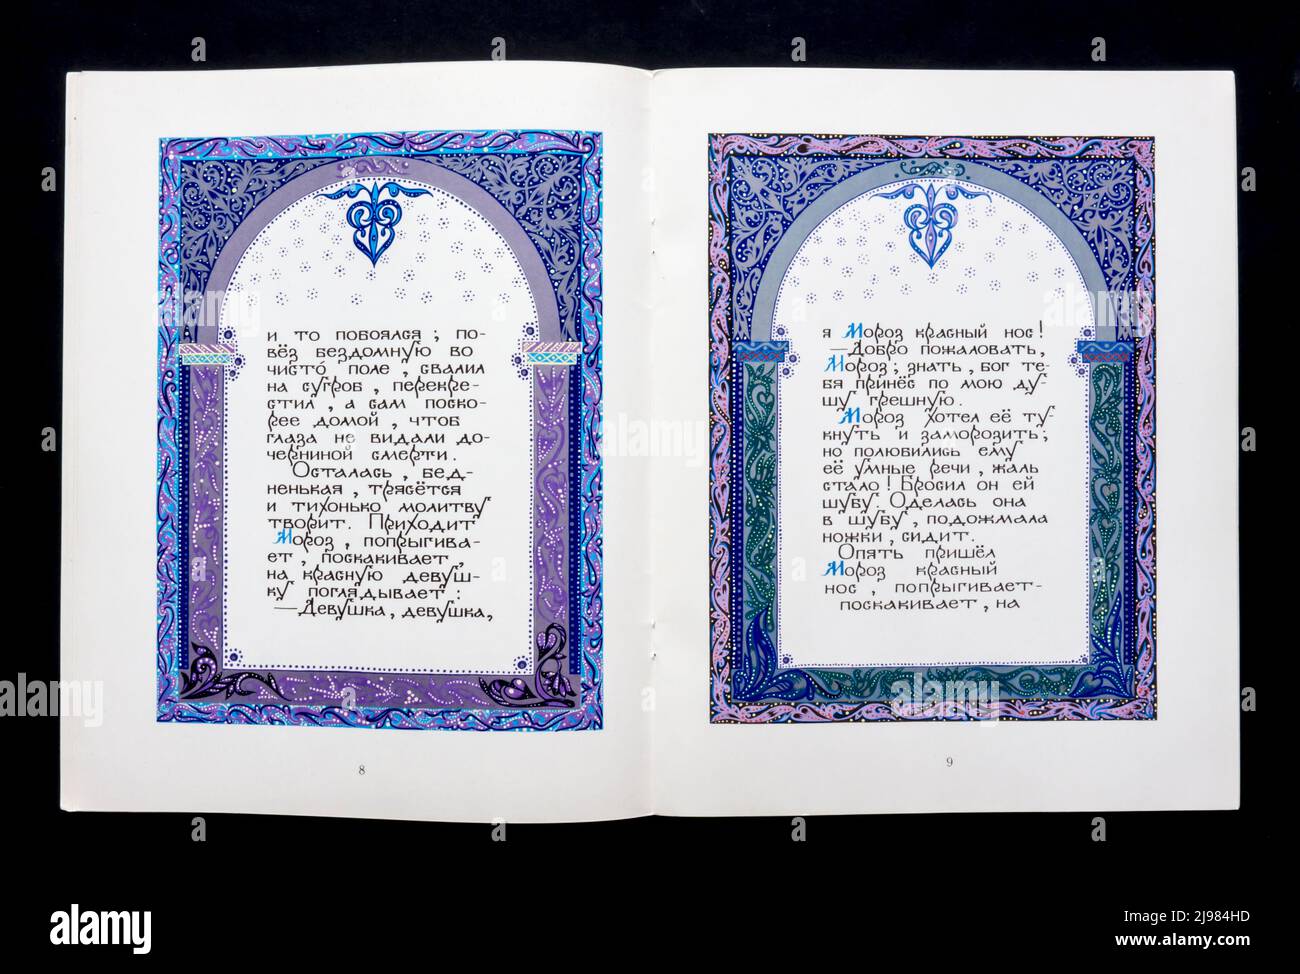 и то побоялся; по-
вёз бездомную во
чисто поле, свалил
на сугроб, перекре-
стил, а сам поско-
рее домой, чтоб
глаза не видали до-
черниной смерти.
Осталась, бед-
ненькая, трясётся
и тихонько молитву
творит. Приходит
Мороз, попрыгива-
ет, поскакивает,
на красную девуш-
ку поглядывает:
—Девушка, девушка,
8
я Мороз красный нос!
—Добро пожаловать,
Мороз; знать, бог те-
бя принёс по мою ду-
шу грешную.
Мороз хотел её ту-
кнуть и заморозить;
но полюбились ему
её умные речи, жаль
стало! Бросил он ей
шубу. Оделась она
в шубу, подожмала
ножки, сидит.
Опять пришёл
Мороз красный
нос, попрыгивает-
поскакивает, на
9
alamy
Image ID: 2J984HD
www.alamy.com